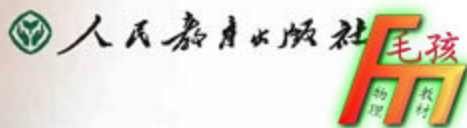 人民教育出版社
毛孩
物理
教材